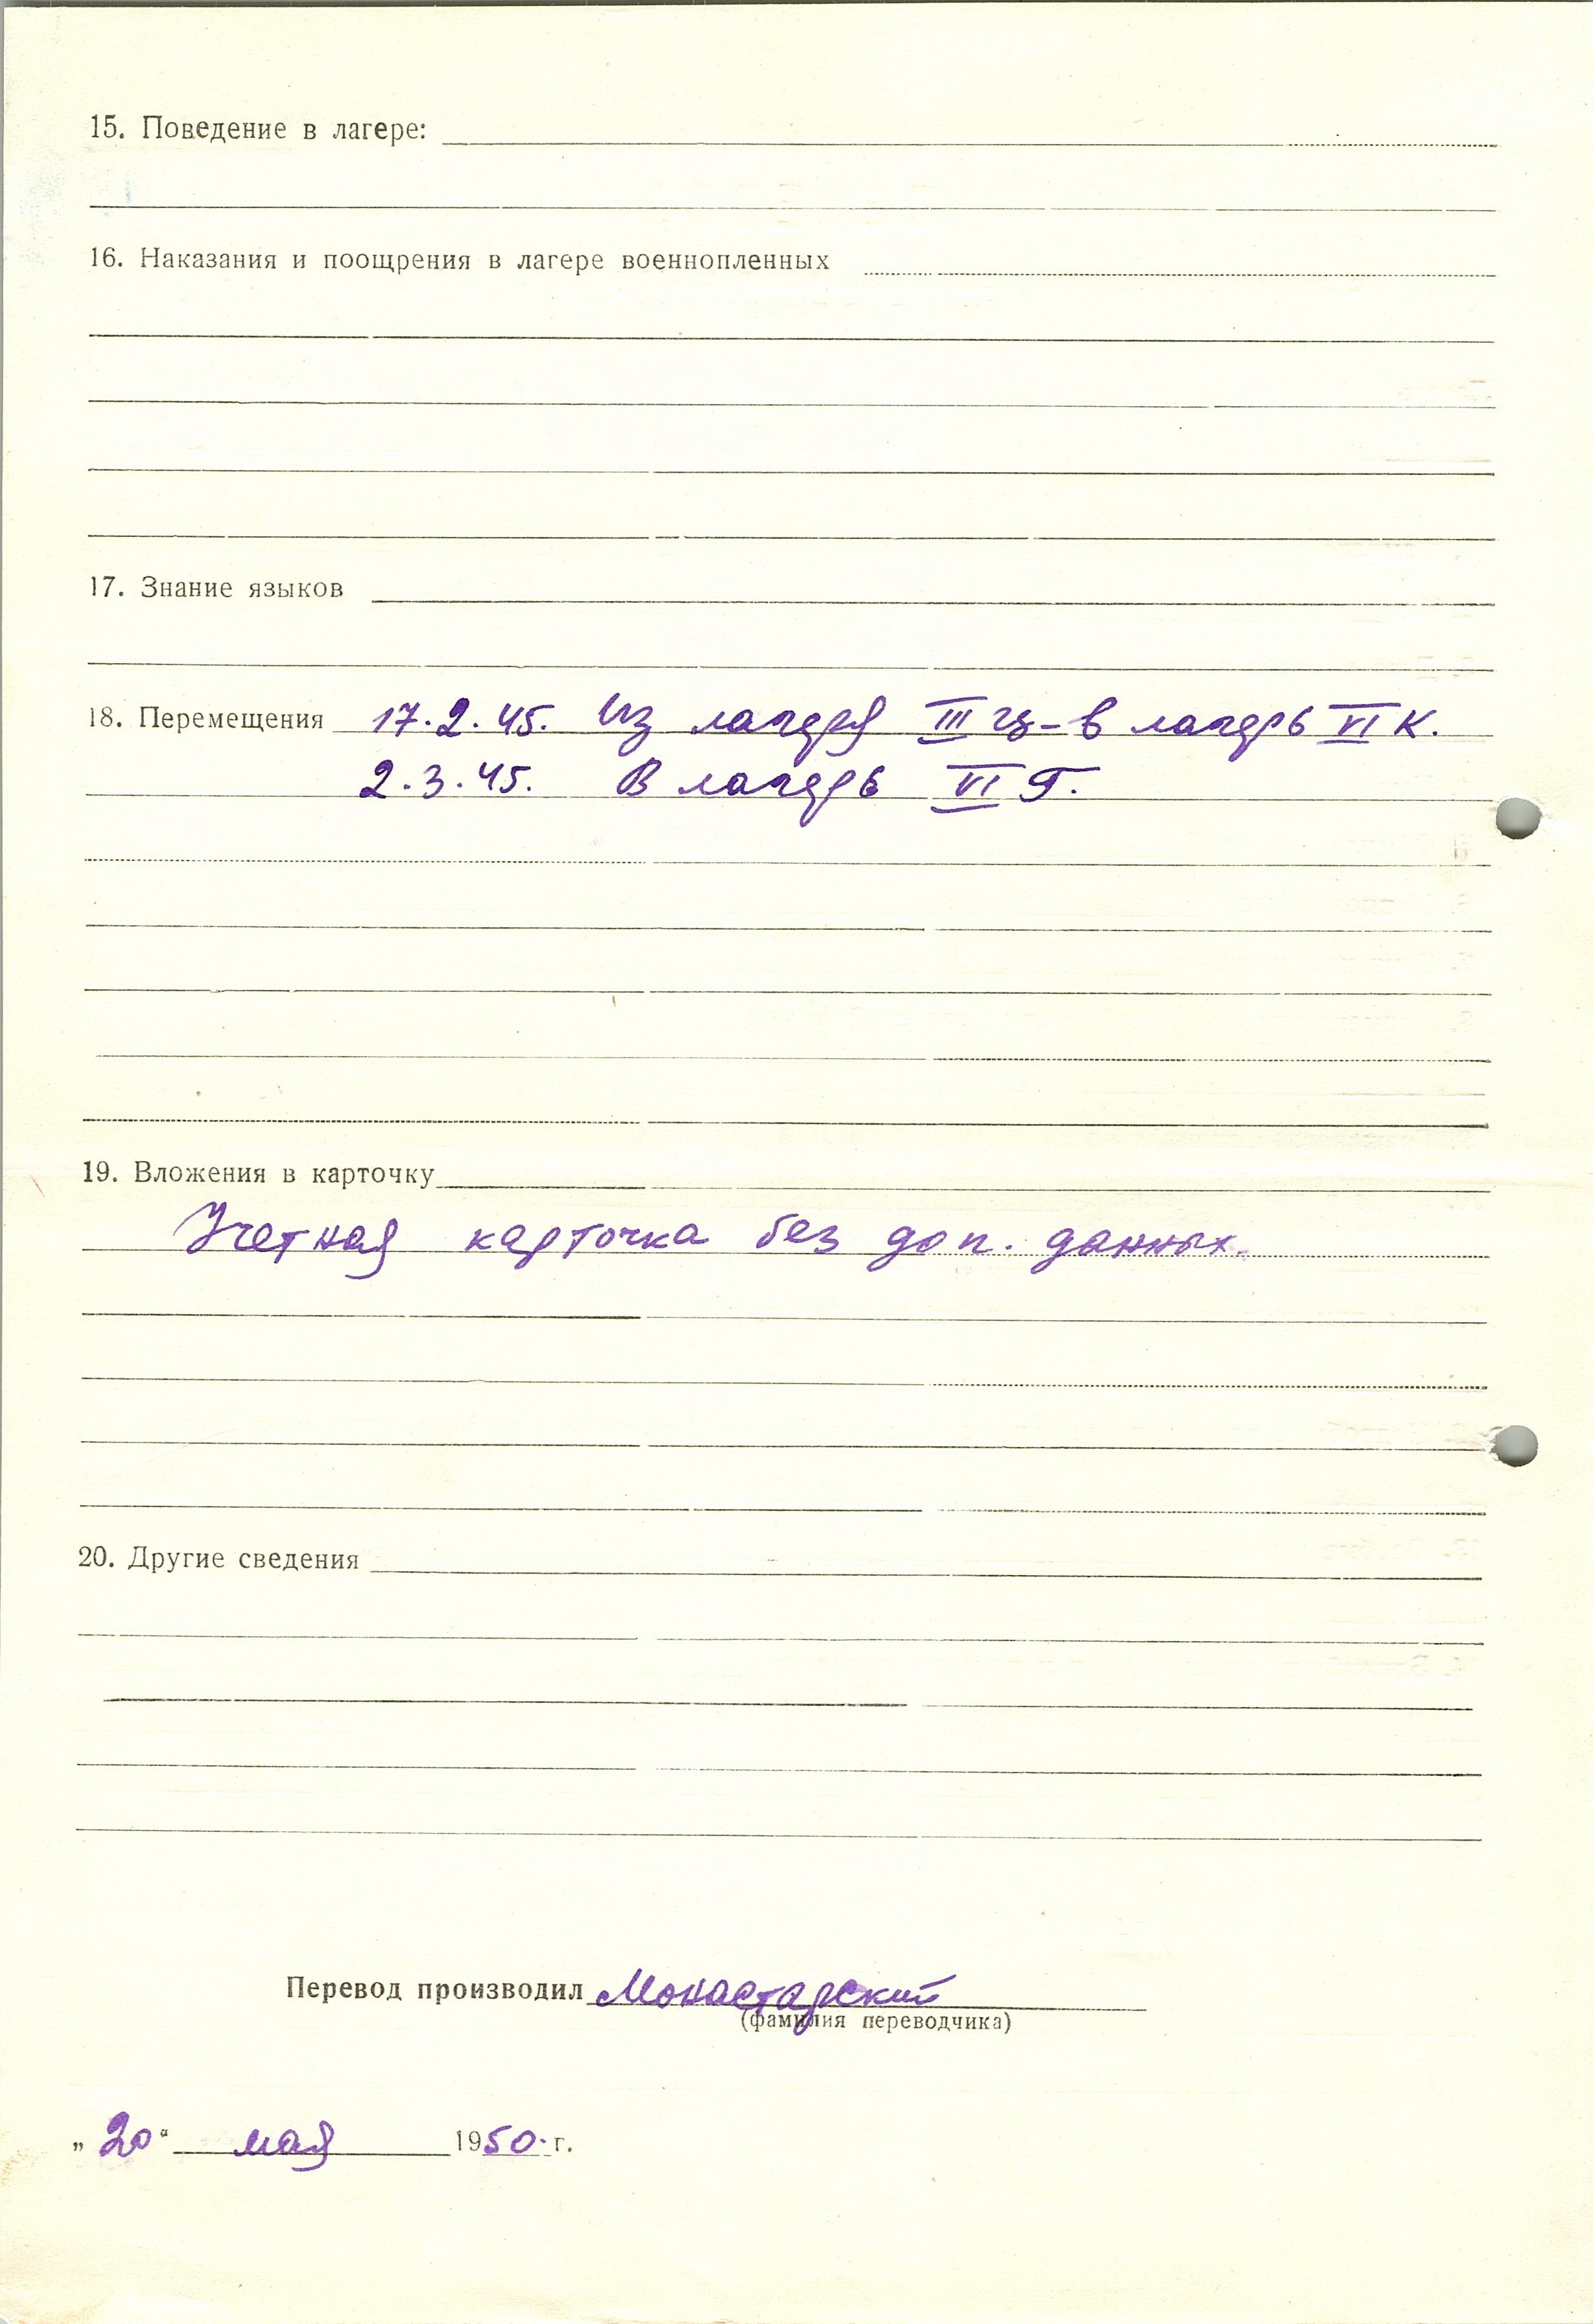 15. Поведение в лагере:
16. Наказания и поощрения в лагере военнопленных
17. Знание языков
18. Перемещения 17.2.45. Из лагеря III Ц – в лагерь VI К.
2.3.45. В лагерь VI Г.
19. Вложения в карточку
Учетная карточка без доп. данных.
20. Другие сведения
Перевод производил Монастарский
(фамилия переводчика)
„20“ мая 1950. г.